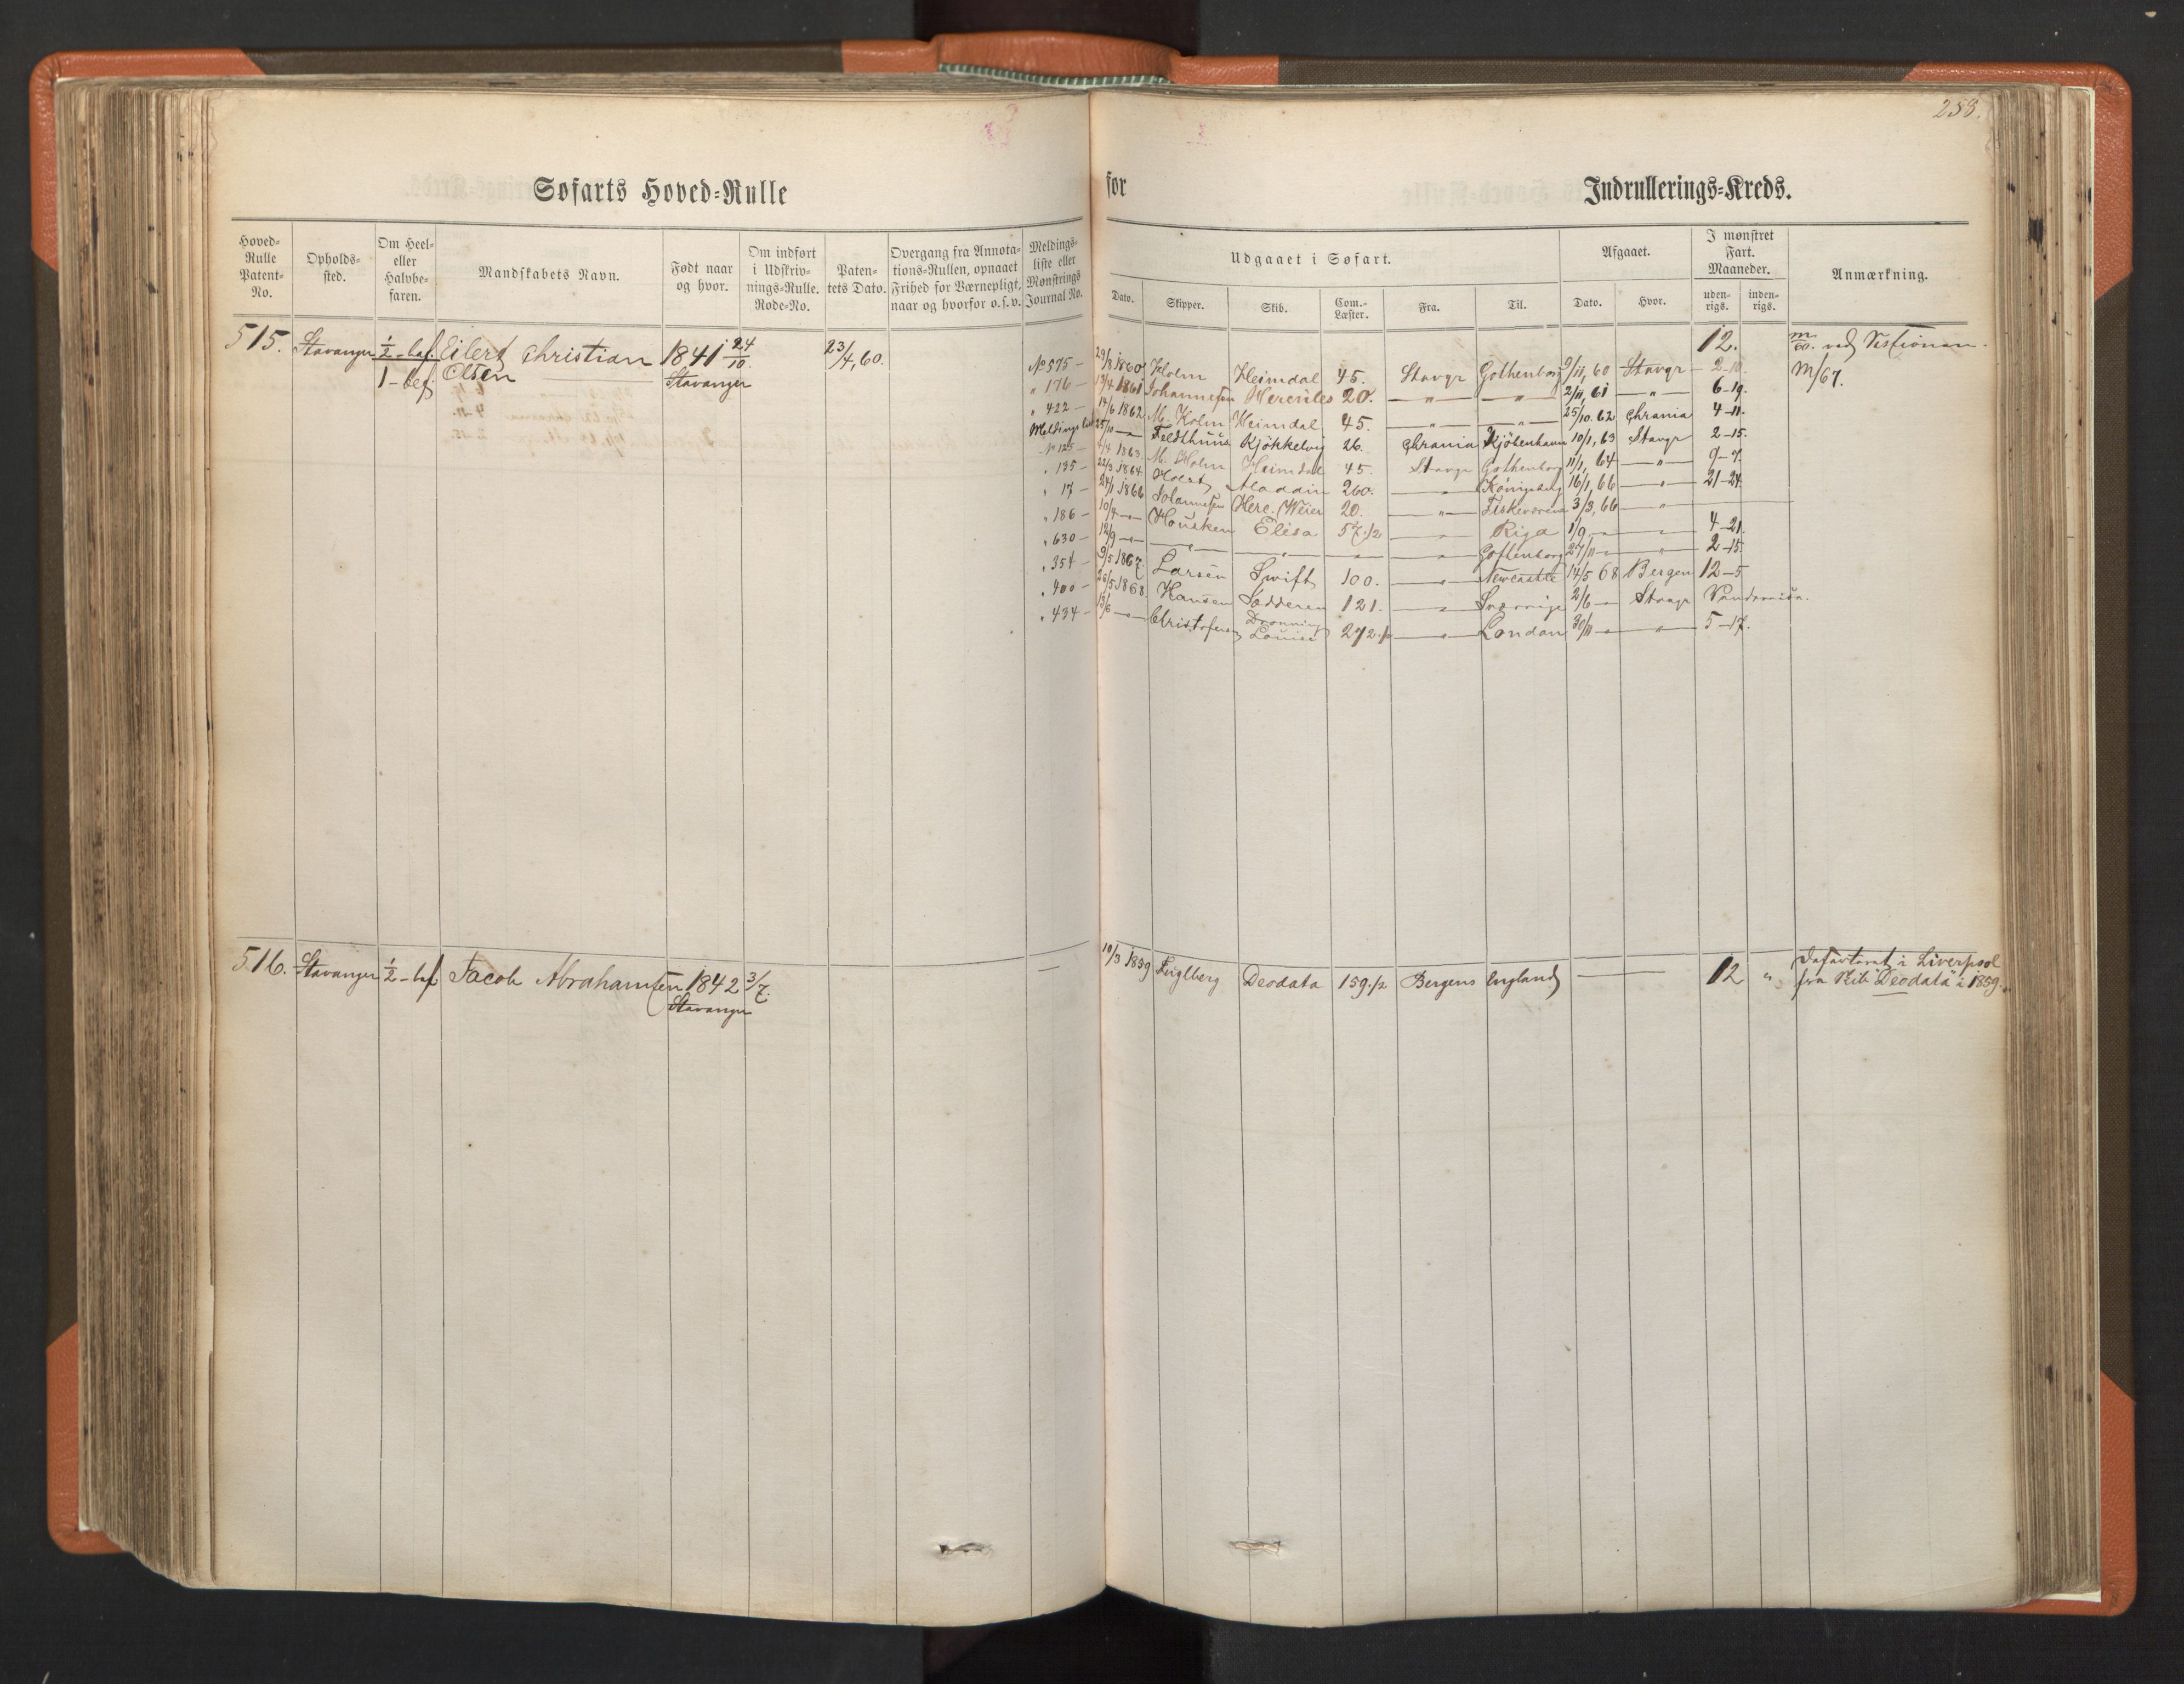 253.
Søfarts Hoved-Rulle for Indrullerings-Kreds.
Hoved-Rulle Patent-No. Opholds-sted. Om Heel- eller Halvbe-faren. Mandskabets Navn. Født naar og hvor. Om indført i Udskriv-nings-Rulle. Rode-No. Paten-tets Dato. Overgang fra Annota-tions-Rullen, opnaaet Frihed for Værnepligt, naar og hvorfor o.s.v. Meldings-liste eller Mønstrings Journal No.
Udgaaet i Søfart. Afgaaet. I mønstret Fart. Maaneder. Anmærkning.
Dato. Skipper. Skib. Com.-Læster. Fra. Til. Dato. Hvor. uden-rigs. inden-rigs.
515. Stavanger ½-bef. Eilert Christian 1841 24/10. 23/4, 60. 12. m/60. ved Sessionen.
1-bef. Olsen Stavanger
No 575 29/8 1860 Holm Heimdal 45. Stavgr Gothenborg 9/11, 60 Stavgr 2-10. M/67.
" 176 - 13/4 1861 Johannesen Hercules 20. " " 2/11, 61 " 6-19.
" 422 - 14/6 1862 M. Holm Heimdal 45. " " 25/10. 62 Chrania 4-11.
Meldingslist 25/10 - Feldthuus Kjøkkelvig 26. Chrania Kjöbenhavn 10/1, 63 Stavgr 2-15.
No 125 - 1863 M. Holm Heimdal 45. Stavgr Gothenborg
" 135 - 22/3 1864 Aladdin 260. " Königsberg 11/1, 64 " 9-7.
" 17 - 24/1 1866 Johannesen Herc. 20. " Fiskevarerne 16/1, 66 " 21-24
" 186 - 10/4 - Housken Elisa 57.½ " Riga 3/3, 66 "
" 630 - 12/9 - " " " " Gothenborg 1/9 - " 4-21.
27/11 - " 2-15.
" 354 - 9/5 1867. Larsen Swift 100. " Newcastle 14/5 68 Bergen 12-5
" 400 - 26/5 1868. Hansen Sødderen 121. " Sverrige 2/6 - Stvgr
" 434 - 13/6 - Christofersen Dronning Louise 272.½ " London 30/11 - " 5-17.
516. Stavanger ½-bef Jacob Abrahamsen 1842 3/7. - 19/3 1859 Deodata 159.½ Bergens England - - 12 " i Liverpool
Stavanger fra Skib "Deodata" i 1859.